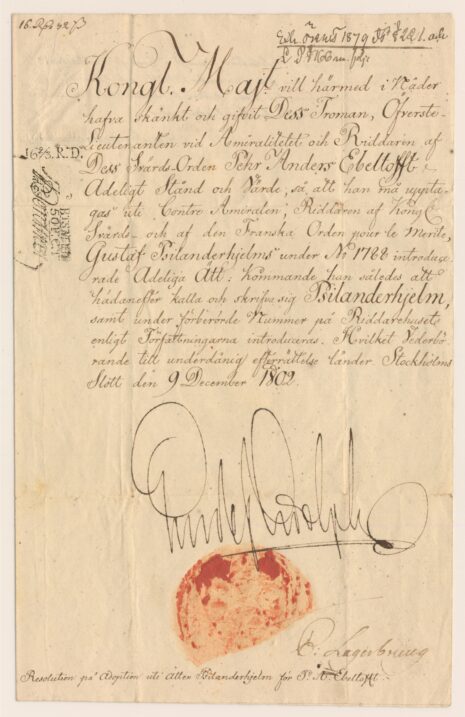 1879
Kongl. Maj:t vill härmed i Nåder
hafva skänkt och gifvit Dess Troman, Öfverste-
Lieutenanten vid Amiralitetet och Riddaren af
16 2/3. R:D.
Dess Svärds-Orden Pehr Anders Ebeltofft
Adeligt Stånd och Värde, så att han må upptagas
uti Contre Amiralen, Riddaren af Kongl.
Svärds- och af den Franska Orden pour le Merite,
Gustaf Psilanderhjelms under No 1788 introduce-
rade Adeliga Ätt. Kommande han således att
hädanefter kalla och skrifva sig Psilanderhjelm,
samt under förberörde Nummer på Riddarehuset
enligt Författningarna introduceras. Hvilket Vederbö-
rande till underdånig efterrättelse länder. Stockholms
Slott den 9 December 1802.
Gustaf Adolph
Lagerbring
Resolution på Adoption uti Ätten Psilanderhjelm för P. A. Ebeltofft